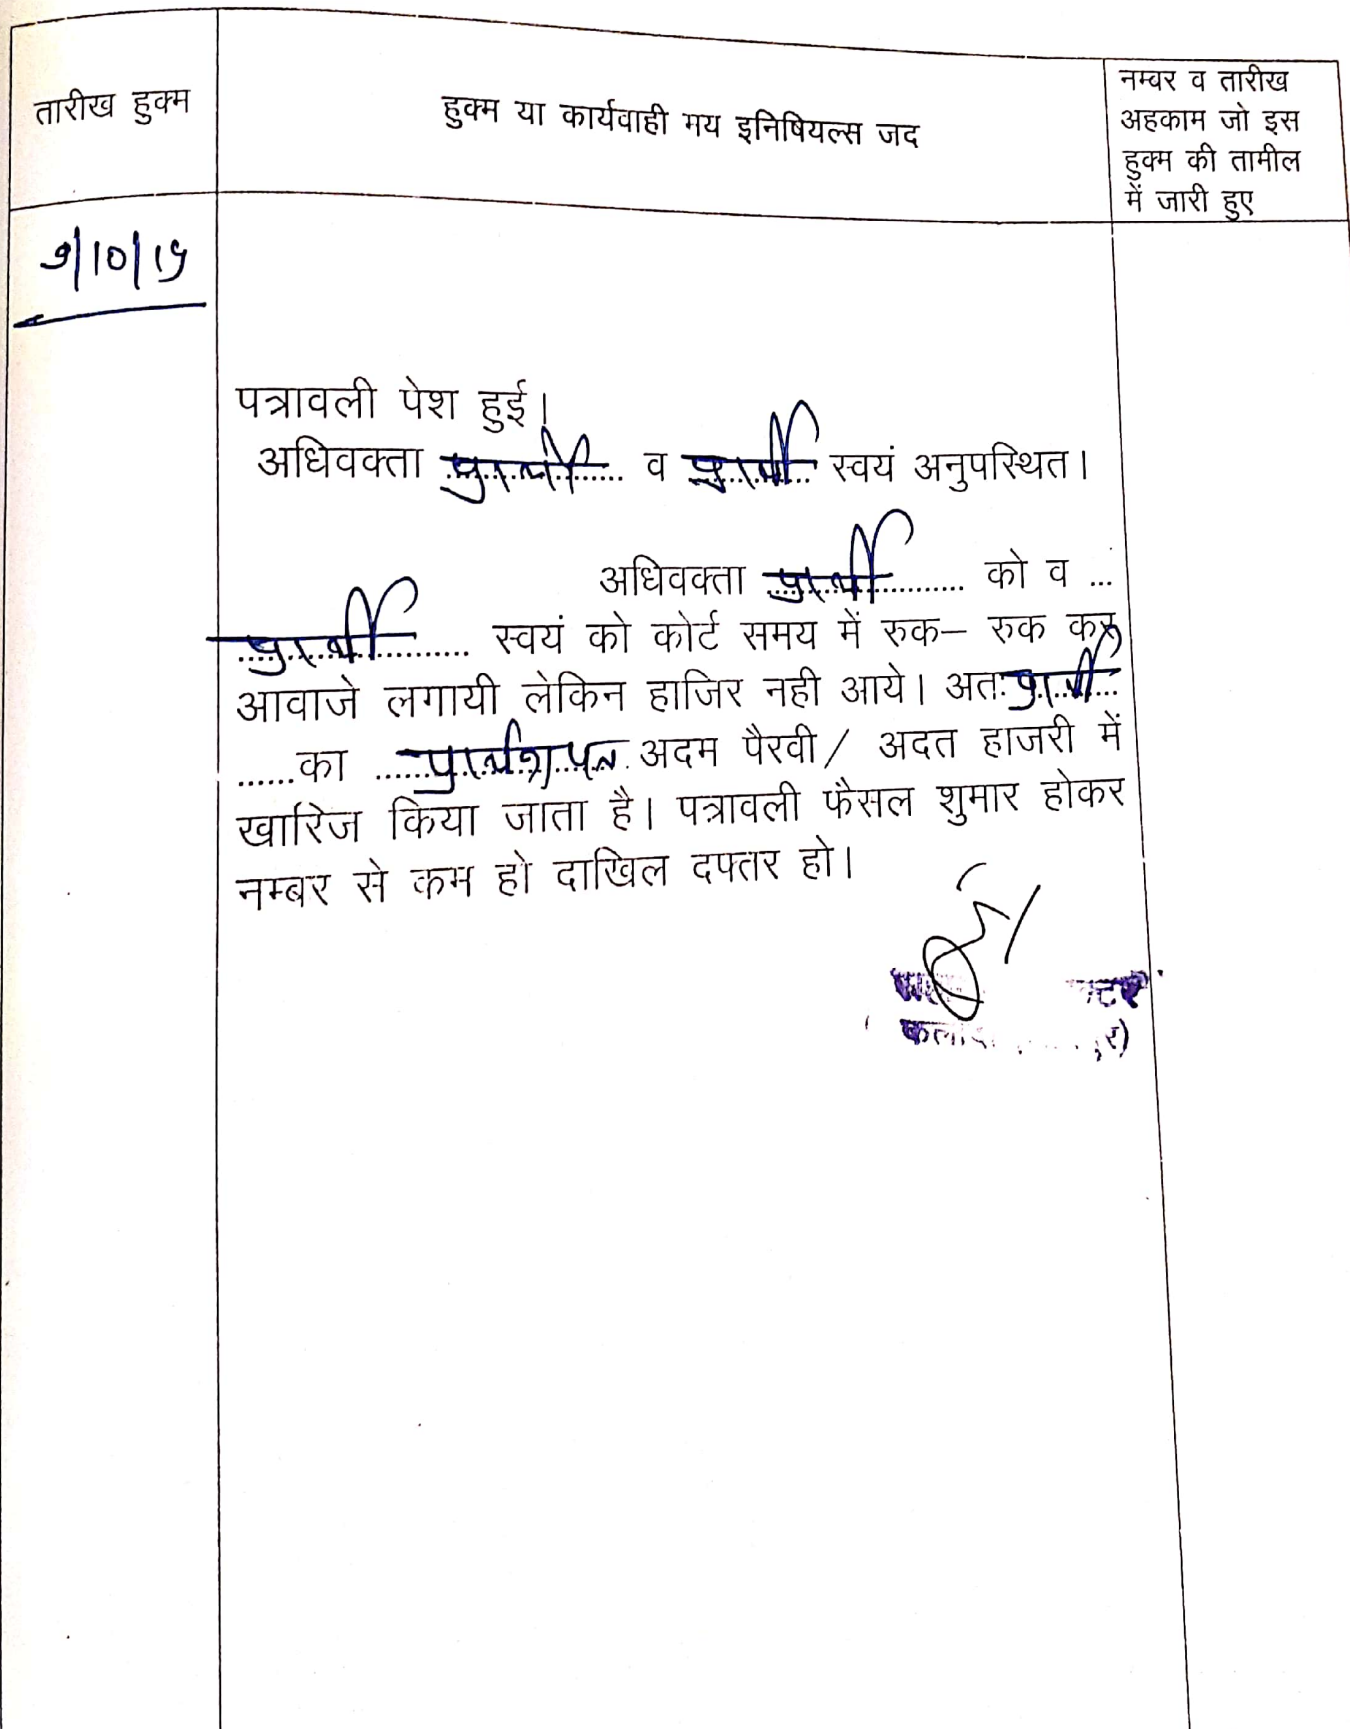 तारीख हुक्म
हुक्म या कार्यवाही मय इनिषियल्स जद
नम्वर व तारीख
अहकाम जो इस
हुक्म की तामील
में जारी हुए
9/10/19
पत्रावली पेश हुई।
अधिवक्ता प्रार्थी व प्रार्थी स्वयं अनुपस्थित।
अधिवक्ता प्रार्थी को व ...
प्रार्थी स्वयं को कोर्ट समय में रुक– रुक कर
आवाजे लगायी लेकिन हाजिर नही आये। अतः प्रार्थी
......का प्रार्थना पत्र अदम पैरवी/ अदत हाजरी में
खारिज किया जाता है। पत्रावली फैसल शुमार होकर
नम्बर से कम हो दाखिल दफ्तर हो।